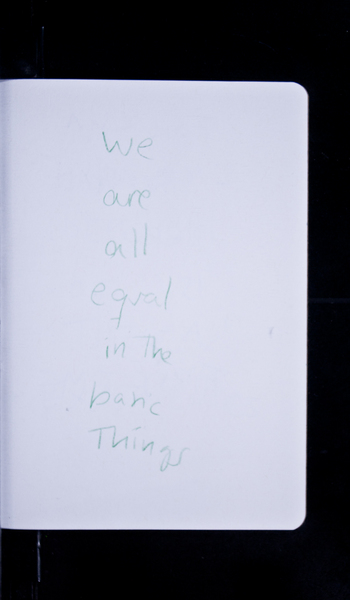 We
are
all
equal
in The
basic
Things